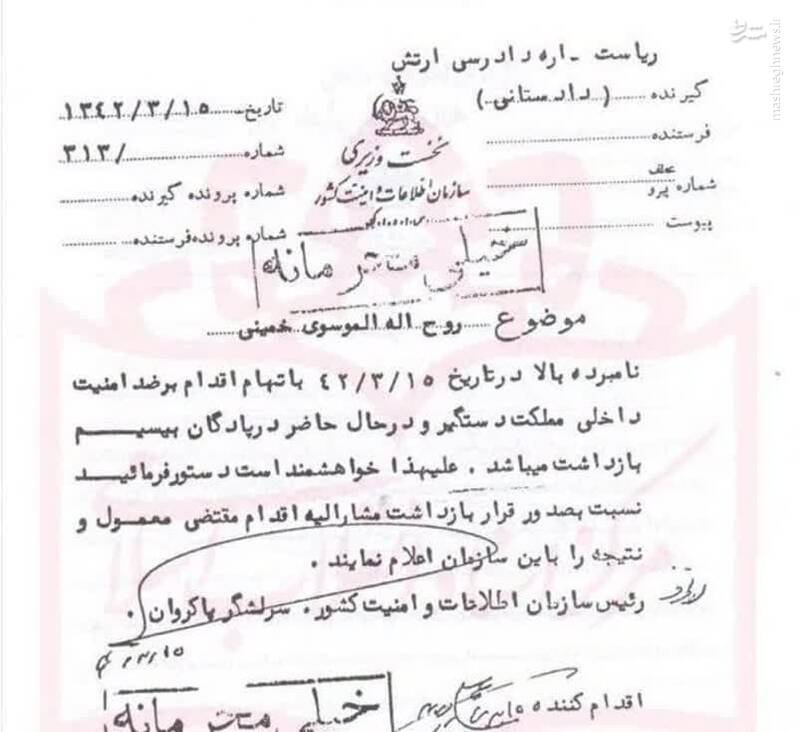 ریاست - اره دادرسی ارتش
گیرنده (دادستانی)
تاریخ ۱۳۴۲/۳/۱۵
فرستنده
نخست وزیری
شماره /۳۱۳
شماره پرو
سازمان اطلاعات و امنیت کشور
شماره پرونده گیرنده
پیوست
شماره پرونده فرستنده
خیلی محرمانه
موضوع روح اله الموسوی خمینی
نامبرده بالا در تاریخ ۴۲/۳/۱۵ باتهام اقدام برضد امنیت
داخلی مملکت دستگیر و در حال حاضر در پادگان بیسیم
بازداشت میباشد . علیهذا خواهشمند است دستور فرمائید
نسبت بصدور قرار بازداشت مشارالیه اقدام مقتضی معمول و
نتیجه را باین سازمان اعلام نمایند .
رئیس سازمان اطلاعات و امنیت کشور . سرلشگر پاکروان .
اقدام کننده
خیلی محرمانه
mashreghnews.ir